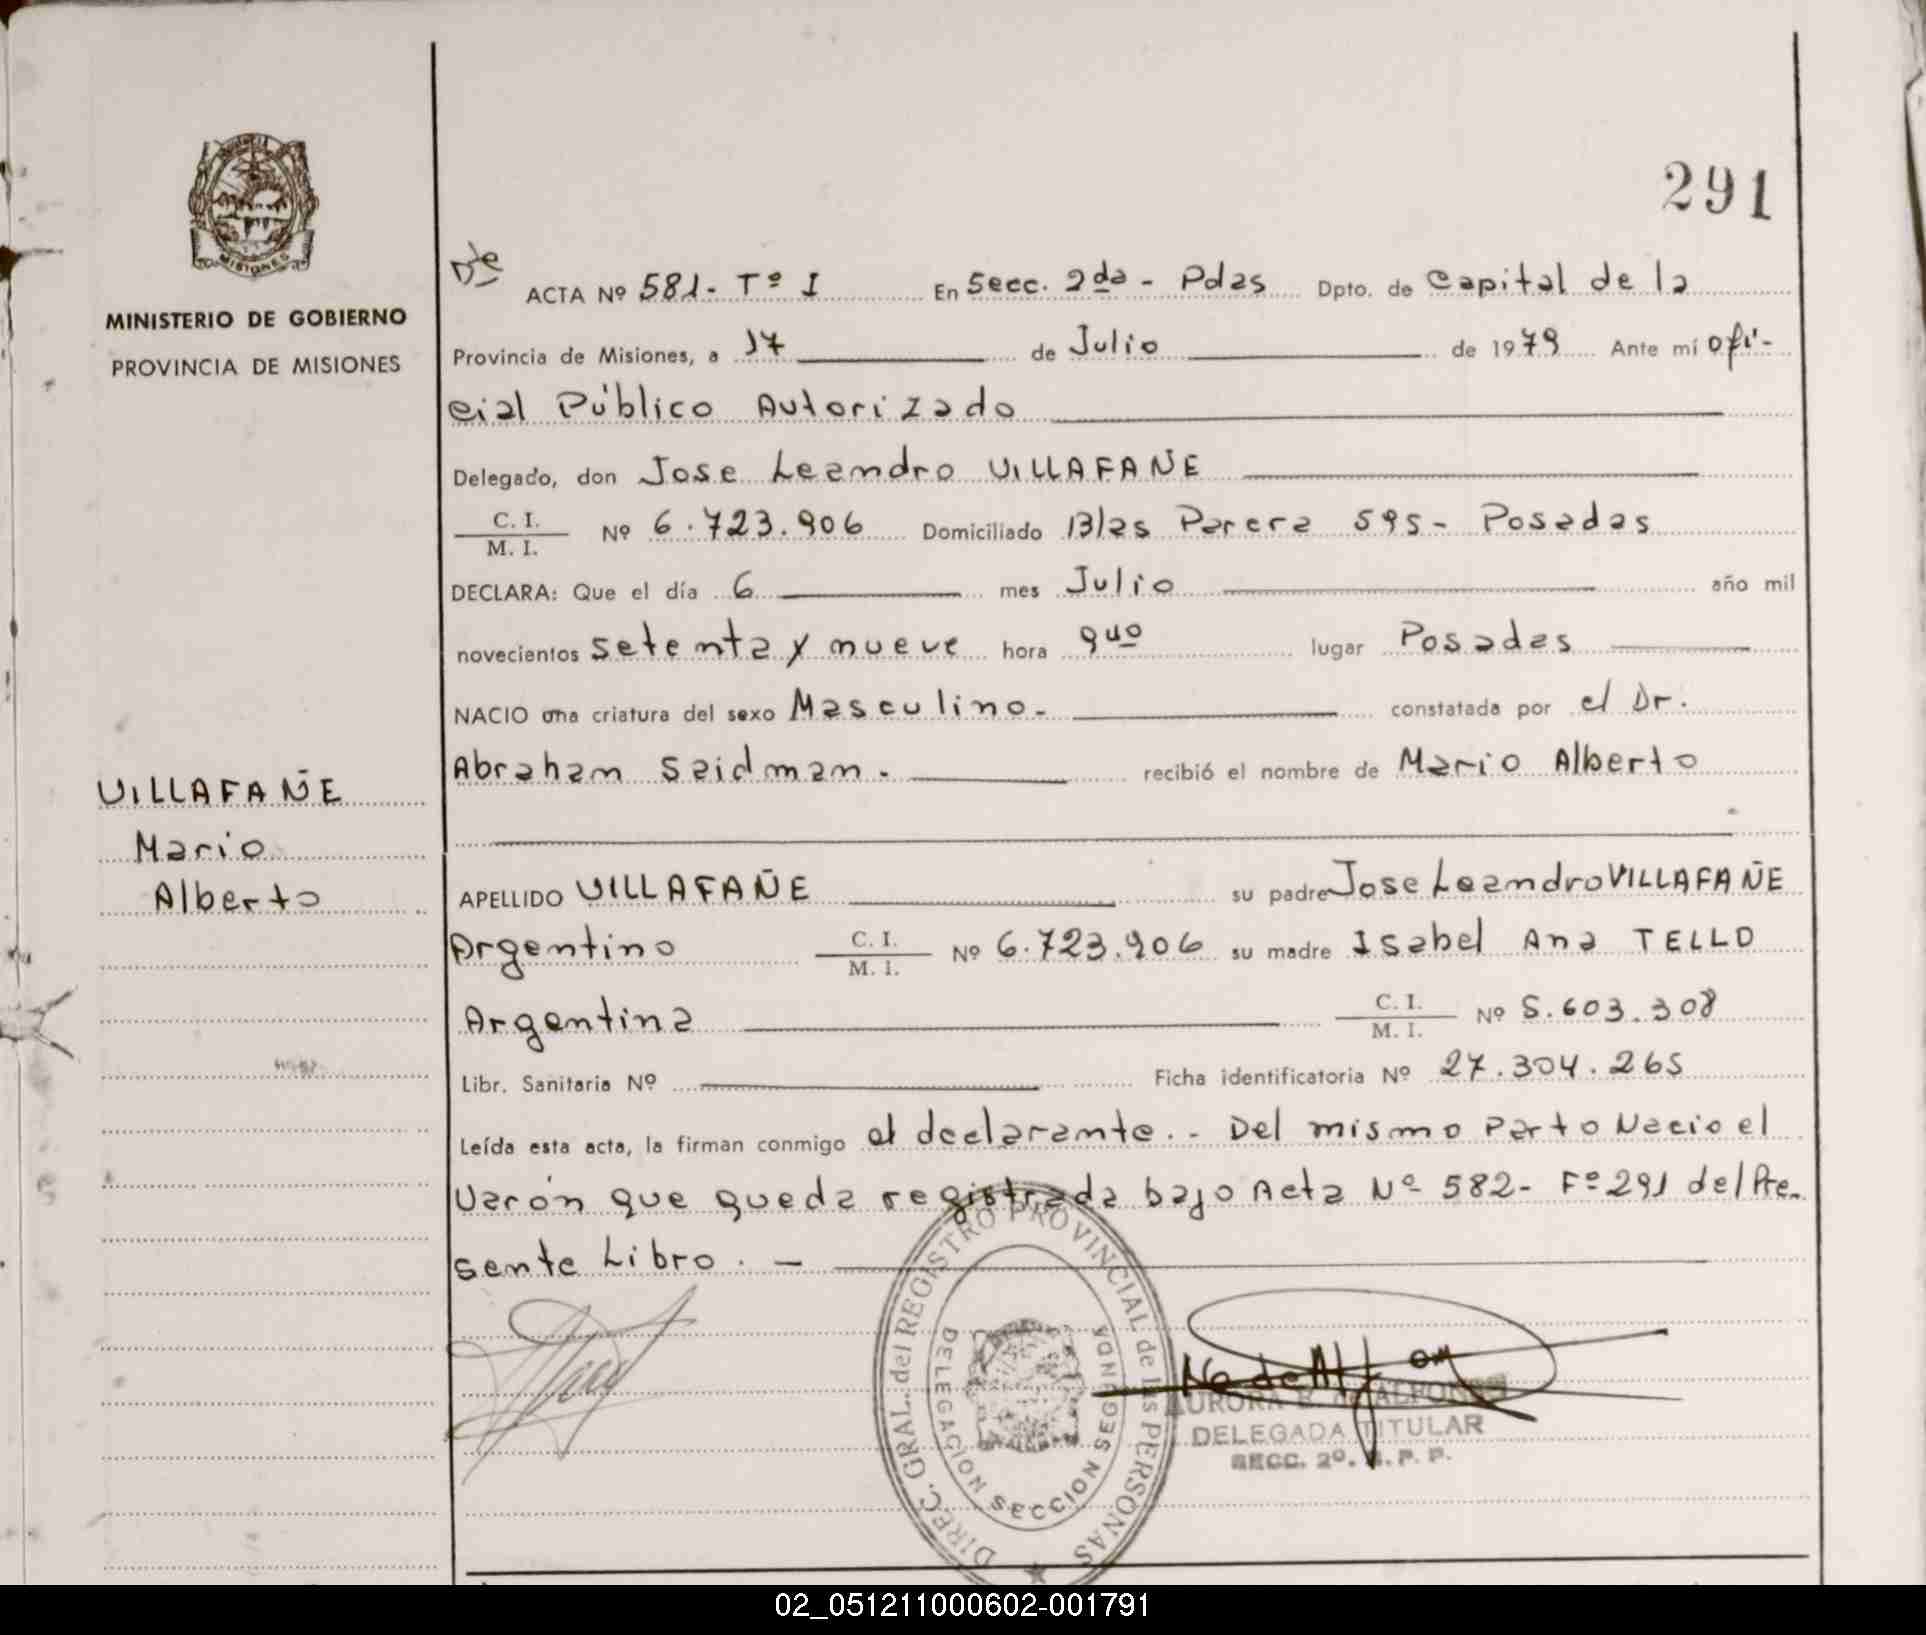 291
MISIONES
MINISTERIO DE GOBIERNO
PROVINCIA DE MISIONES
VILLAFAÑE
Mario
Alberto
ACTA Nº 581- Tº I En Secc. 2da - Pdas Dpto. de Capital de la
Provincia de Misiones, a 17 de Julio de 1979 Ante mí ofi-
cial Público Autorizado
Delegado, don Jose Leandro VILLAFAÑE
C. I.
M. I. Nº 6.723.906 Domiciliado Blas Parera 595- Posadas
DECLARA: Que el día 6 mes Julio año mil
novecientos setenta y nueve hora 9 lugar Posadas
NACIO una criatura del sexo Masculino.- constatada por el Dr.
Abraham Saidman. recibió el nombre de Mario Alberto
APELLIDO VILLAFAÑE su padre Jose Leandro VILLAFAÑE
Argentino C. I.
M. I. Nº 6.723.906 su madre Isabel Ana TELLO
Argentina C. I.
M. I. Nº 5.603.308
Libr. Sanitaria Nº Ficha identificatoria Nº 27.304.265
Leída esta acta, la firman conmigo el declarante.- Del mismo Parto Nacio el
Varón que queda registrada bajo Acta Nº 582- Fº 291 del Pre-
sente Libro. -
DIREC. GRAL. del REGISTRO PROVINCIAL de las PERSONAS
DELEGACION SECCION SEGUNDA
AURORA E. de ALFONSO
DELEGADA TITULAR
SECC. 2º. R. P. P.
02_051211000602-001791